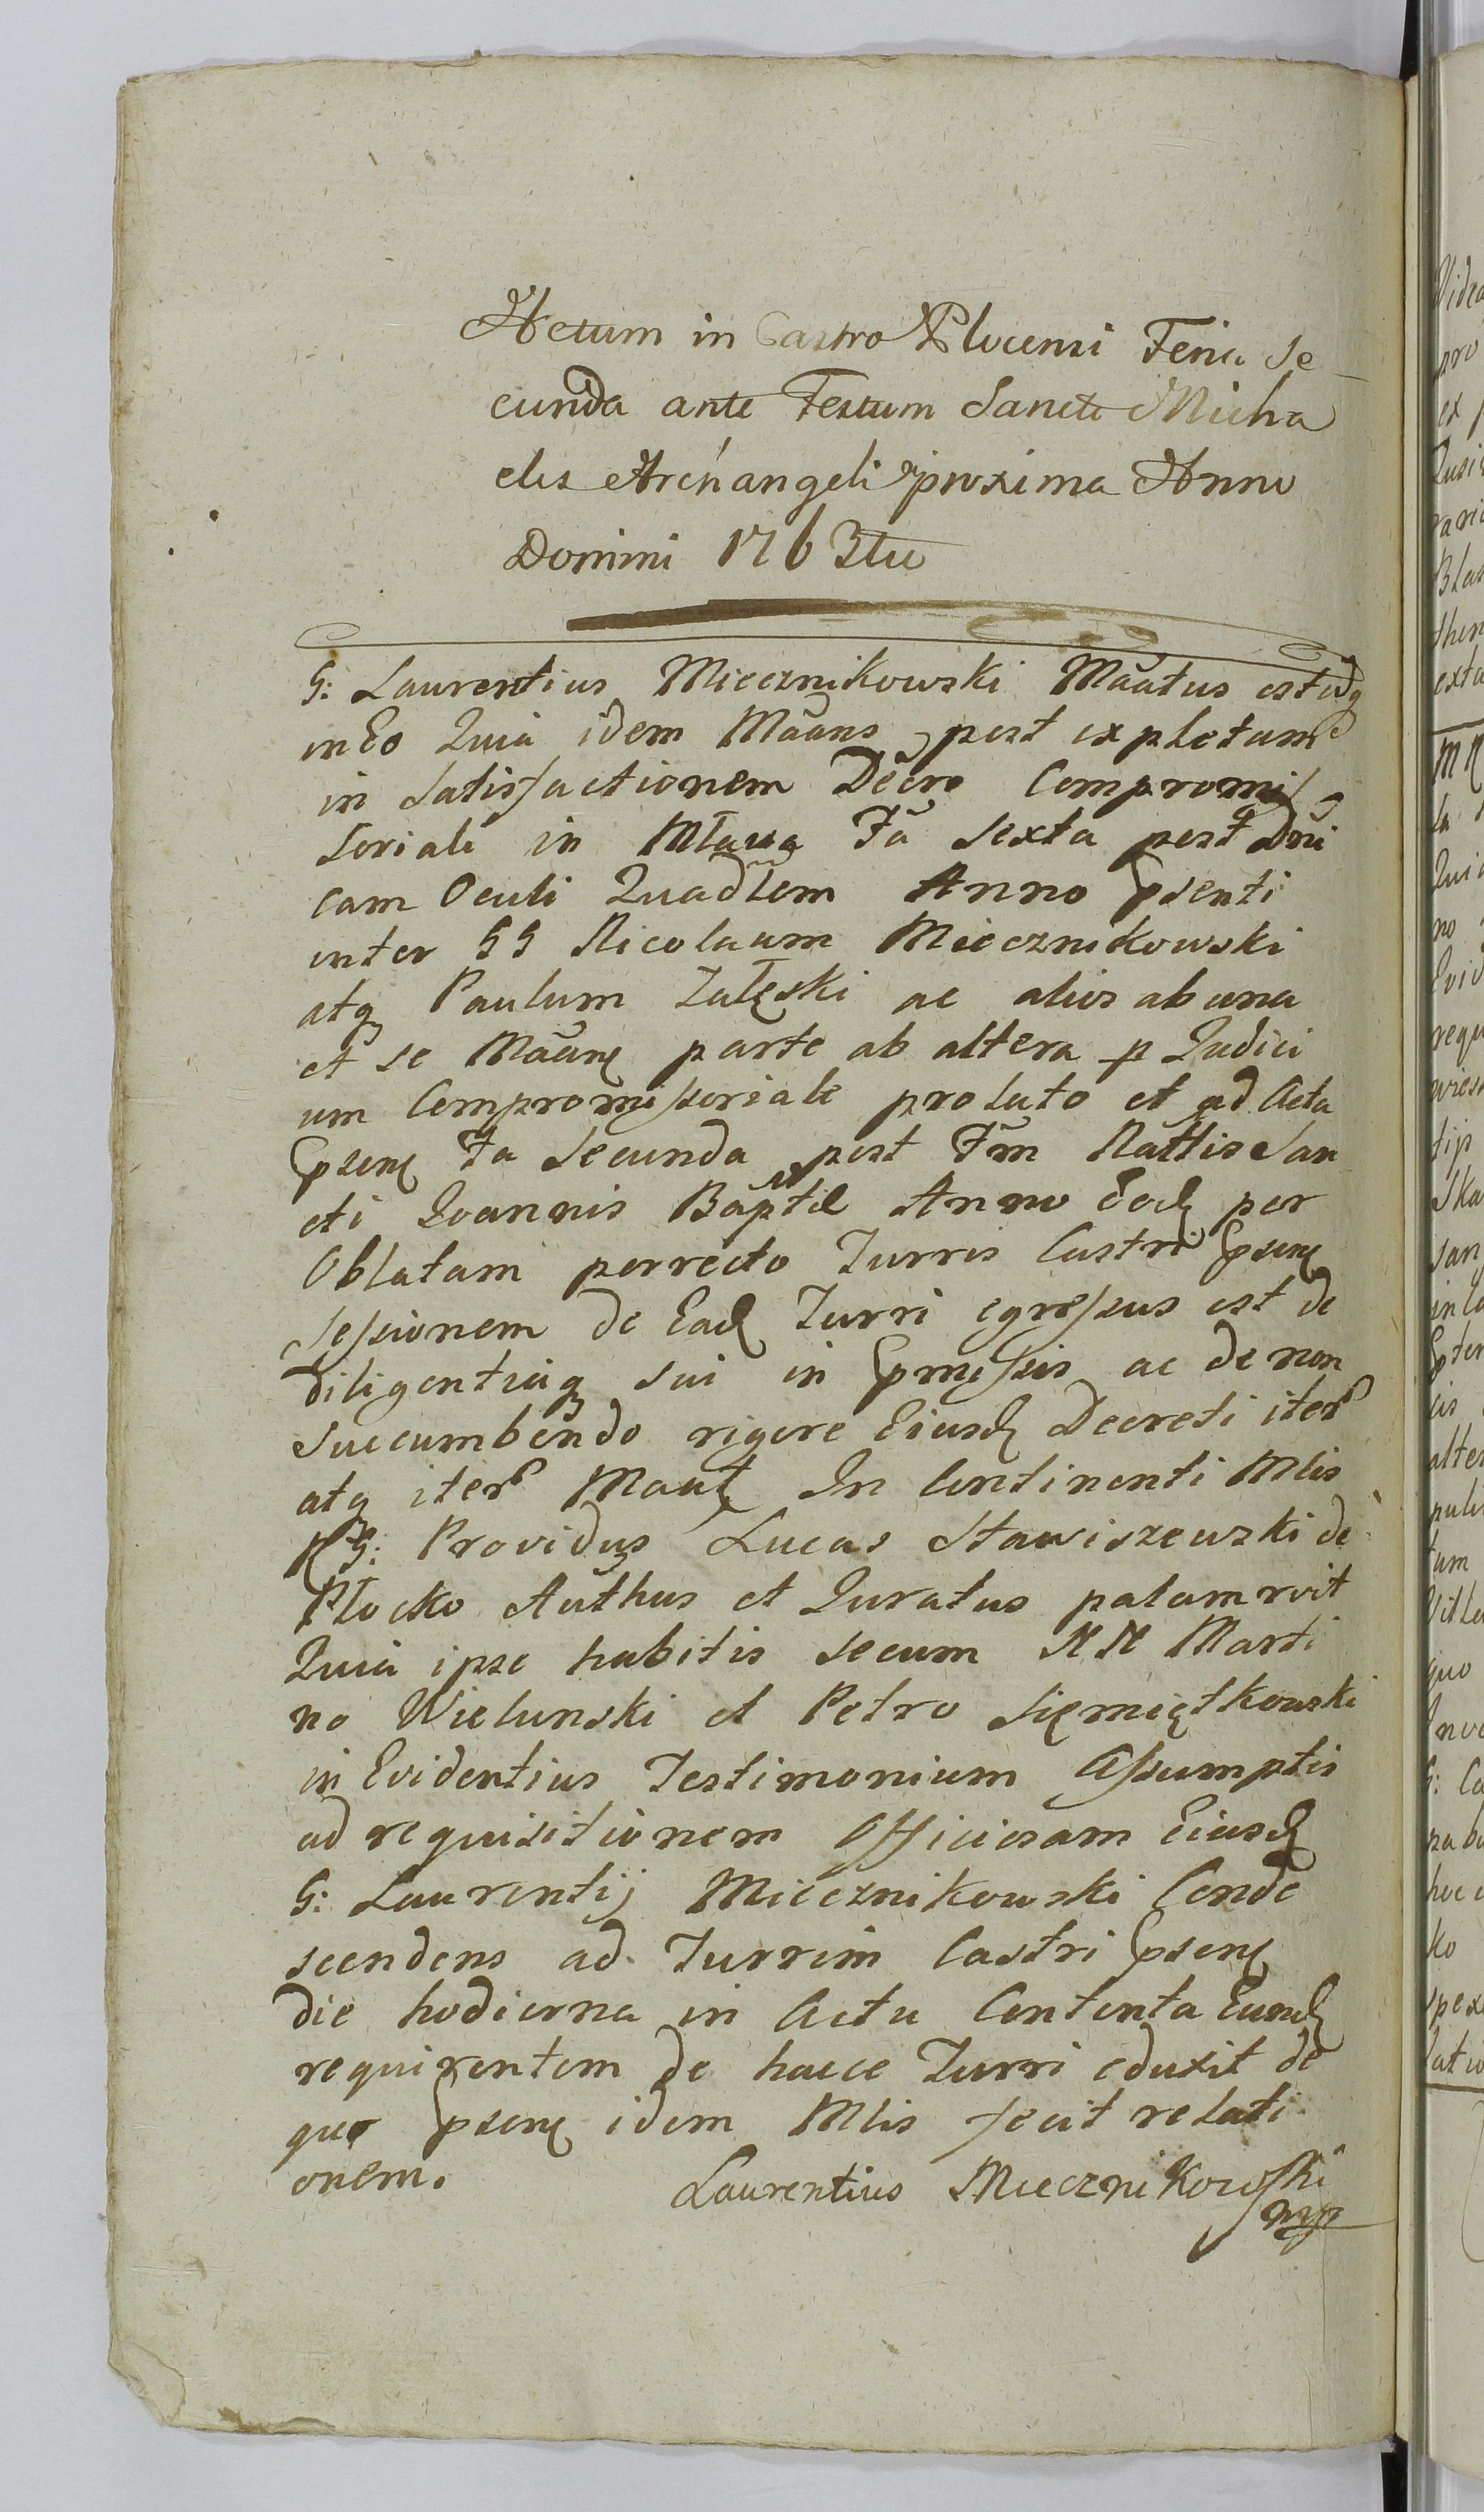 Actum in Castro Plocensi Feria Se
cunda ante Festum Sancti Micha
elis Archangeli proxima Anno
Domini 1763tio
G: Laurentius Miecznikowski Māātus est idq
in Eo Quia idem Māāns post expletam
in Satisfactionem Dēcro Compromis
soriali in Mława Fā Sexta post Dni
cam Oculi Quadlem Anno Psenti
inter GG Nicolaum Miecznikowski
atq Paulum Załęski ac alios ab una
et se Māānē parte ab altera p Judici
um Compromissoriale prolato et ad Acta
Psenē Fa Secunda post Fm Nattis San
cti Joannis Baptæ Anno Eodē per
Oblatam porrecto Turris Castri Psenē
Sessionem de Eadē Turri egressus est de
diligentiaq sui in Pmissis ac de non
Succumbendo rigore Eiusdē Decreti iter
atq iter Maātē In Continenti Mlis
RG: Providus Lucas Stawiszewski de
Płocko Authus et Juratus palam rvit
Quia ipse habitis secum NN Marti
no Wielunski et Petro Siemiątkowski
in Evidentius Testimonium Assumptis
ad requisitionem Officiosam Eiusdē
G: Laurentij Miecznikowski Conde
scendens ad Turrim Castri Psenē
die hodierna in Actu Contenta Eundē
requirentem de hacce Turri eduxit de
quo Psenē idem Mlis fecit relati
onem.
Laurentius Miecznikowski
mp